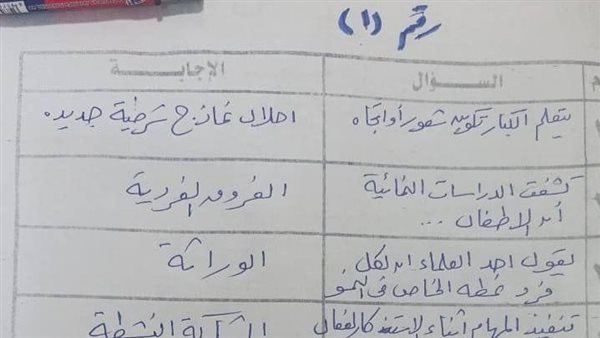 رقم (١)
السؤال
الإجابة
يتعلم الكبار تكوين شعور أو اتجاه
احلال نماذج شرطية جديده
كشفت الدراسات النمائية
أن الاطفال ...
الفروق الفردية
يقول احد العلماء ان لكل
فرد نمطه الخاص فى النمو
الوراثة
تنفيذ المهام أثناء الاستذكار لفعال
النشطة